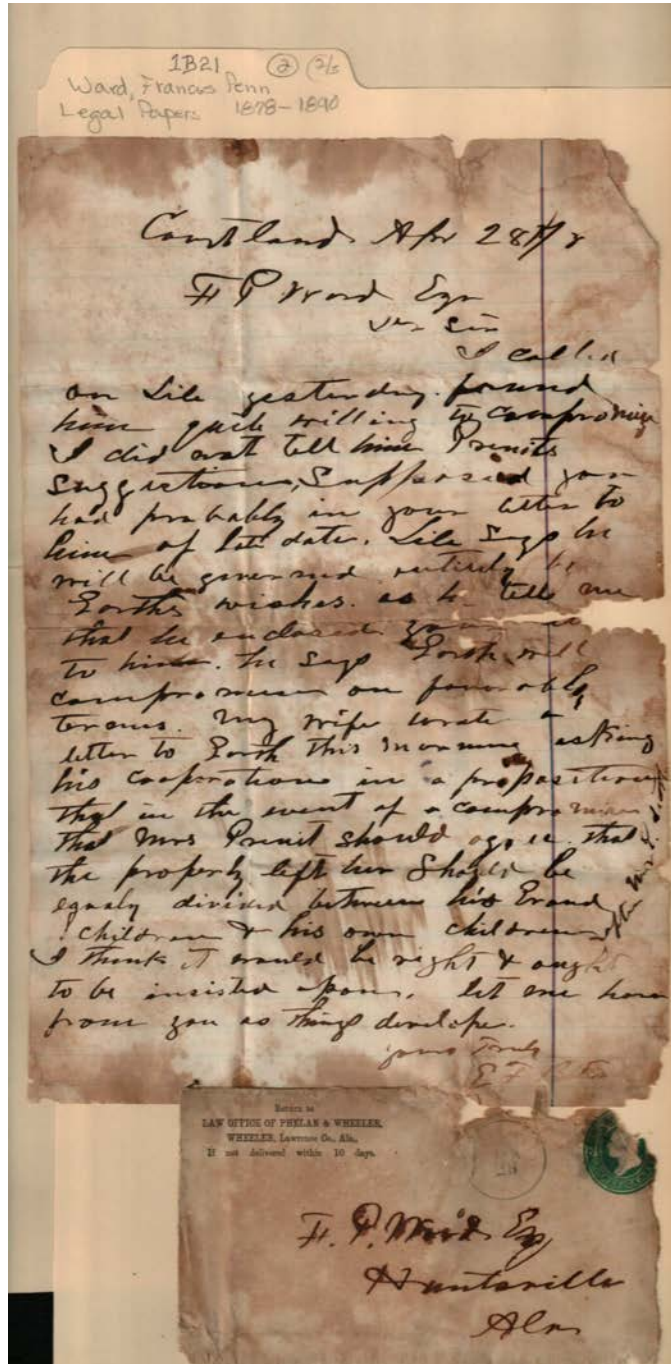 1B21 ② (2/5
Ward, Francis Penn
Legal Papers 1878-1890
Courtland Apr 28
F P Ward Esqr
Sir
I called
on Lile yesterday. found
him quite willing to compromise
I did not tell him Prewits
Suggestions, Supposed you
had probably in your letter to
him of late date. Lile Says he
will be governed entirely by
Earths wishes. as he tells me
that he enclosed
to him. he Says Earth will
compromise on favorable
terms. My wife wrote a
letter to Earth this morning asking
his cooperation in a proposition
that in the event of a compromise
that Mrs Prewit should agree that
the property left her Should be
equaly divided between his Grand
children & his own children
I think it would be right & ought
to be insisted upon. let me hear
from you as things develope.
yours Truly
E F
RETURN TO
LAW OFFICE OF PHELAN & WHEELER,
WHEELER, Lawrence Co., Ala.,
If not delivered within 10 days.
F. P. Ward Esq
Huntsville
Ala